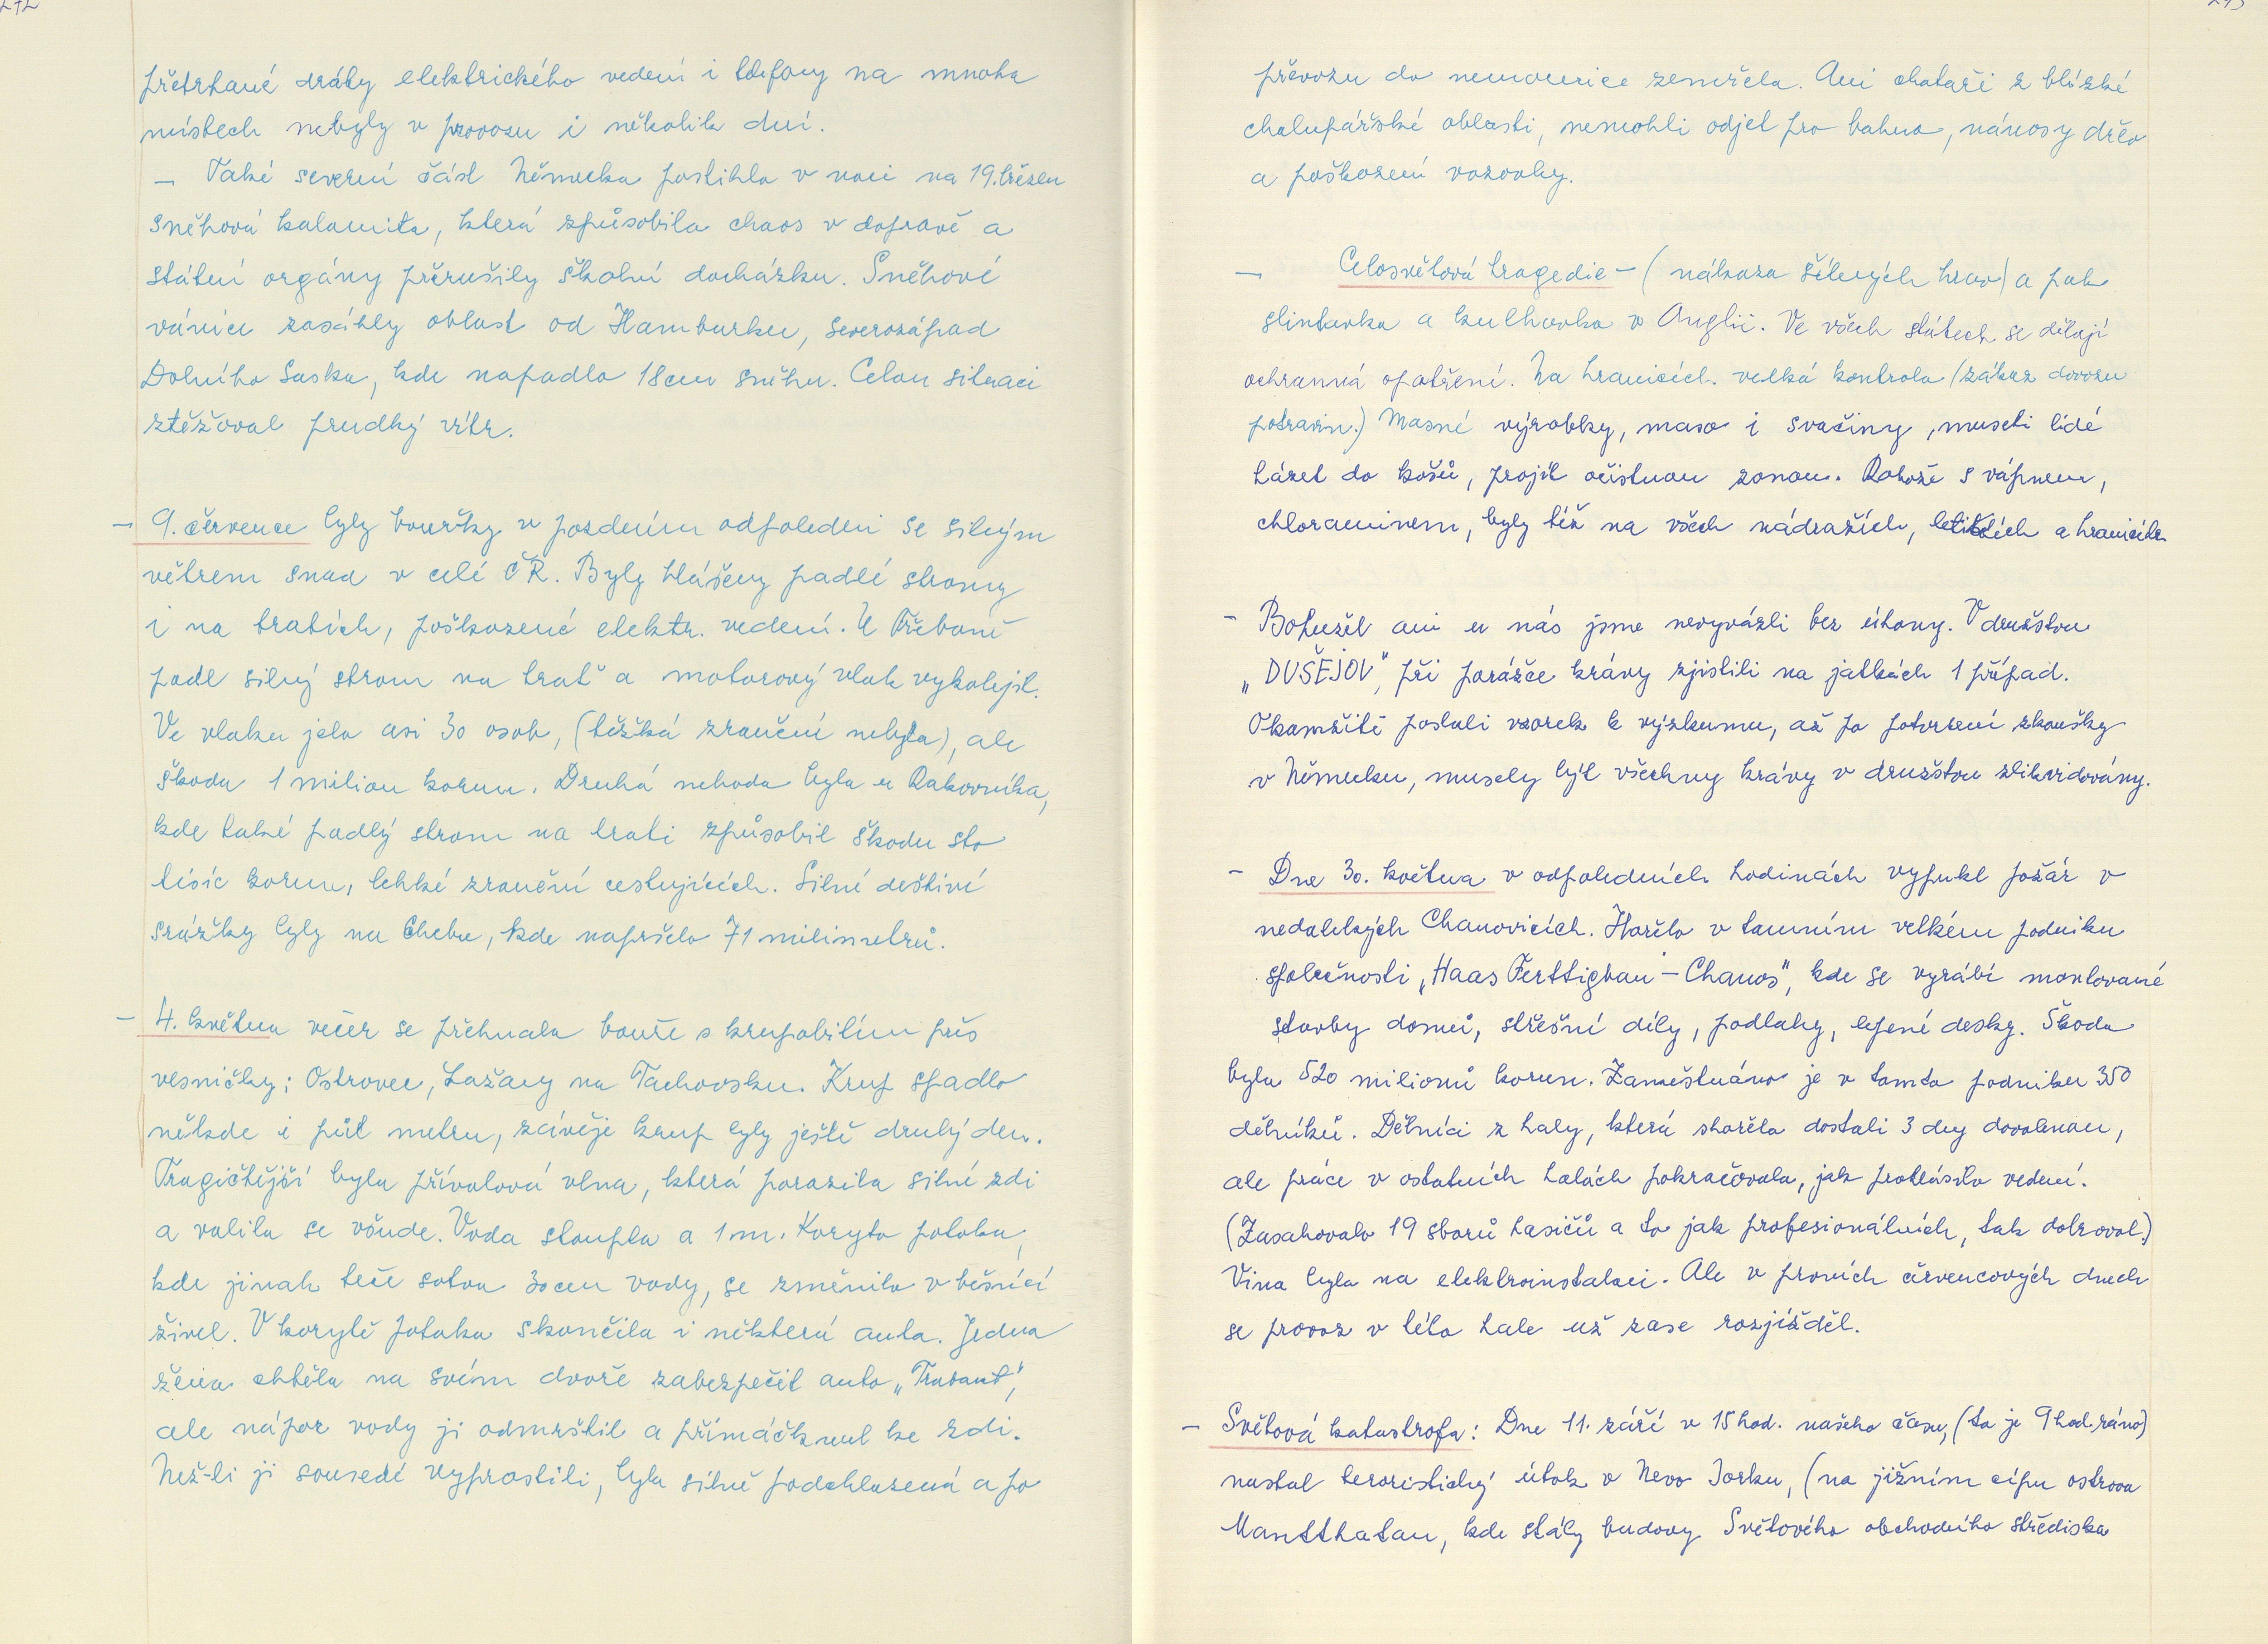 272
přetrhané dráty elektrického vedení i telefony na mnoha
místech nebyly v provozu i několik dní.
– Také severní část Německa postihla v noci na 19. březen
sněhová kalamita, která způsobila chaos v dopravě a
státní orgány přerušily školní docházku. Sněhové
vánice zasáhly oblast od Hamburku, severozápad
Dolního Saska, kde napadlo 18cm sněhu. Celou situaci
ztěžoval prudký vítr.
– 9. července byly bouřky v pozdním odpoledni se silným
větrem snad v celé ČR. Byly hlášeny padlé stromy
i na tratích, poškozené elektr. vedení. U Třeboně
padl silný strom na trať a motorový vlak vykolejil.
Ve vlaku jelo asi 30 osob, (těžká zranění nebyla), ale
škoda 1 milion korun. Druhá nehoda byla u Rakovníka,
kde také padlý strom na trati způsobil škodu sto
tisíc korun, lehké zranění cestujících. Silné deštivé
srážky byly na Chebu, kde napršelo 71 milimetrů.
– 4. května večer se přehnala bouře s krupobitím přes
vesničky: Ostrovec, Lažany na Tachovsku. Krup spadlo
někde i půl metru, závěje krup byly ještě druhý den.
Tragičtější byla přívalová vlna, která porazila silné zdi
a valila se všude. Voda stoupla a 1 m. Koryto potoka,
kde jinak teče sotva 30 cm vody, se změnilo v běsnící
živel. V korytě potoka skončila i některá auta. Jedna
žena chtěla na svém dvoře zabezpečit auto „Trabant",
ale nápor vody ji odmrštil a přimáčknul ke zdi.
Než-li ji sousedé vyprostili, byla silně podchlazená a po
převozu do nemocnice zemřela. Ani chataři z blízké
chalupářské oblasti, nemohli odjet pro bahno, nánosy dřev
a poškození vozovky.
– Celosvětová tragedie – (nákaza šílených krav) a pak
slintavka a kulhavka v Anglii. Ve všech státech se dělají
ochranná opatření. Na hranicích velká kontrola (zákaz dovozu
potravin.) Masné výrobky, maso i svačiny, museli lidé
házet do košů, projít očistnou zonou. Rohože s vápnem,
chloraminem, byly též na všech nádražích, letištích a hranicích
– Bohužel ani u nás jsme nevyvázli bez úhony. V družstvu
„DUŠEJOV", při porážce krávy zjistili na jatkách 1 případ.
Okamžitě poslali vzorek k výzkumu, až po potvrzení zkoušky
v Německu, musely být všechny krávy v družstvu zlikvidovány.
– Dne 30. května v odpoledních hodinách vypukl požár v
nedalekých Chanovicích. Hořelo v tamním velkém podniku
společnosti „Haas Ferttigbau – Chanos", kde se vyrábí montované
stavby domů, střešní díly, podlahy, lepené desky. Škoda
byla 520 milionů korun. Zaměstnáno je v tomto podniku 350
dělníků. Dělníci z haly, která shořela dostali 3 dny dovolenou,
ale práce v ostatních halách pokračovala, jak prohlásilo vedení.
(Zasahovalo 19 sborů hasičů a to jak profesionálních, tak dobrovol.)
Vina byla na elektroinstalaci. Ale v prvních červencových dnech
se provoz v této hale už zase rozjížděl.
– Světová katastrofa: Dne 11. září v 15 hod. našeho času, (to je 9 hod. ráno)
nastal teroristický útok v Nevo Jorku, (na jižním cípu ostrova
Mantthatan, kde stály budovy Světového obchodního střediska